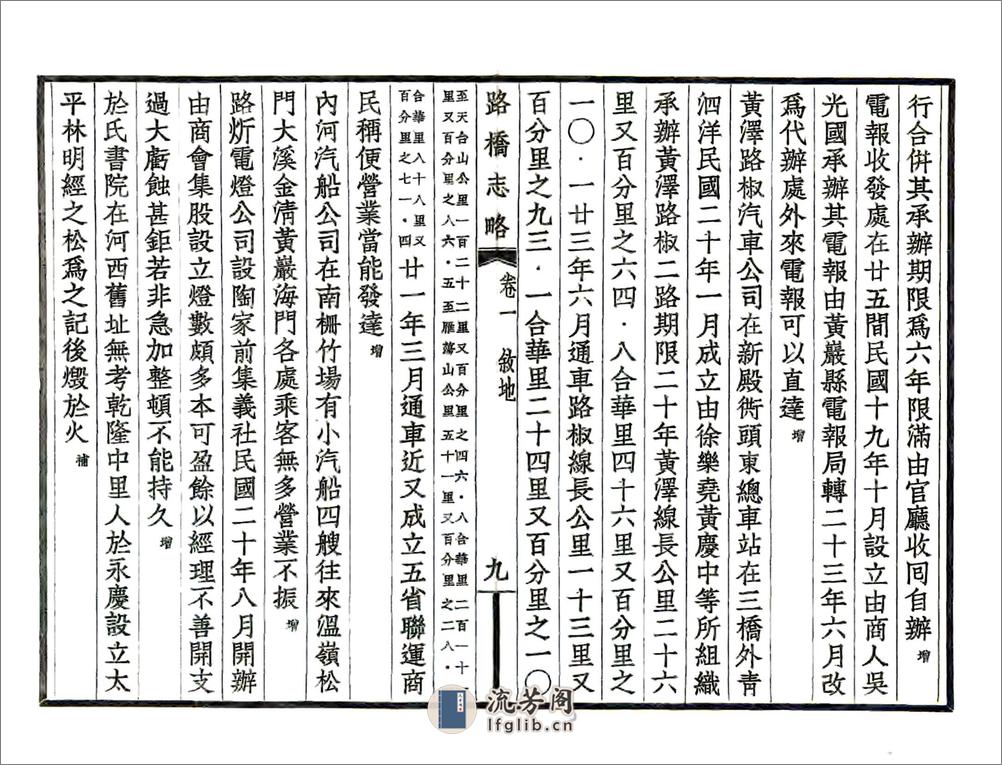 行合併其承辦期限爲六年限滿由官廳收囘自辦增
電報收發處在廿五間民國十九年十月設立由商人吳
光國承辦其電報由黃巖縣電報局轉二十三年六月改
爲代辦處外來電報可以直達增
黃澤路椒汽車公司在新殿衖頭東總車站在三橋外靑
泗洋民國二十年一月成立由徐樂堯黃慶中等所組織
承辦黃澤路椒二路期限二十年黃澤線長公里二十六
里又百分里之六四.八合華里四十六里又百分里之
一〇.一廿三年六月通車路椒線長公里一十三里又
百分里之九三.一合華里二十四里又百分里之一〇
路橋志略 卷一 敘地 九
至天台山公里一百二十二里又百分里之四六.八合華里二百一十
里又百分里之八六.五至雁蕩山公里五十一里又百分里之二八.
合華里八十八里又
百分里之七一.四
廿一年三月通車近又成立五省聯運商
民稱便營業當能發達增
內河汽船公司在南柵竹場有小汽船四艘往來溫嶺松
門大溪金淸黃巖海門各處乘客無多營業不振增
路炘電燈公司設陶家前集義社民國二十年八月開辦
由商會集股設立燈數頗多本可盈餘以經理不善開支
過大虧蝕甚鉅若非急加整頓不能持久增
於氏書院在河西舊址無考乾隆中里人於永慶設立太
平林明經之松爲之記後燬於火補
流芳阁
lfglib.cn